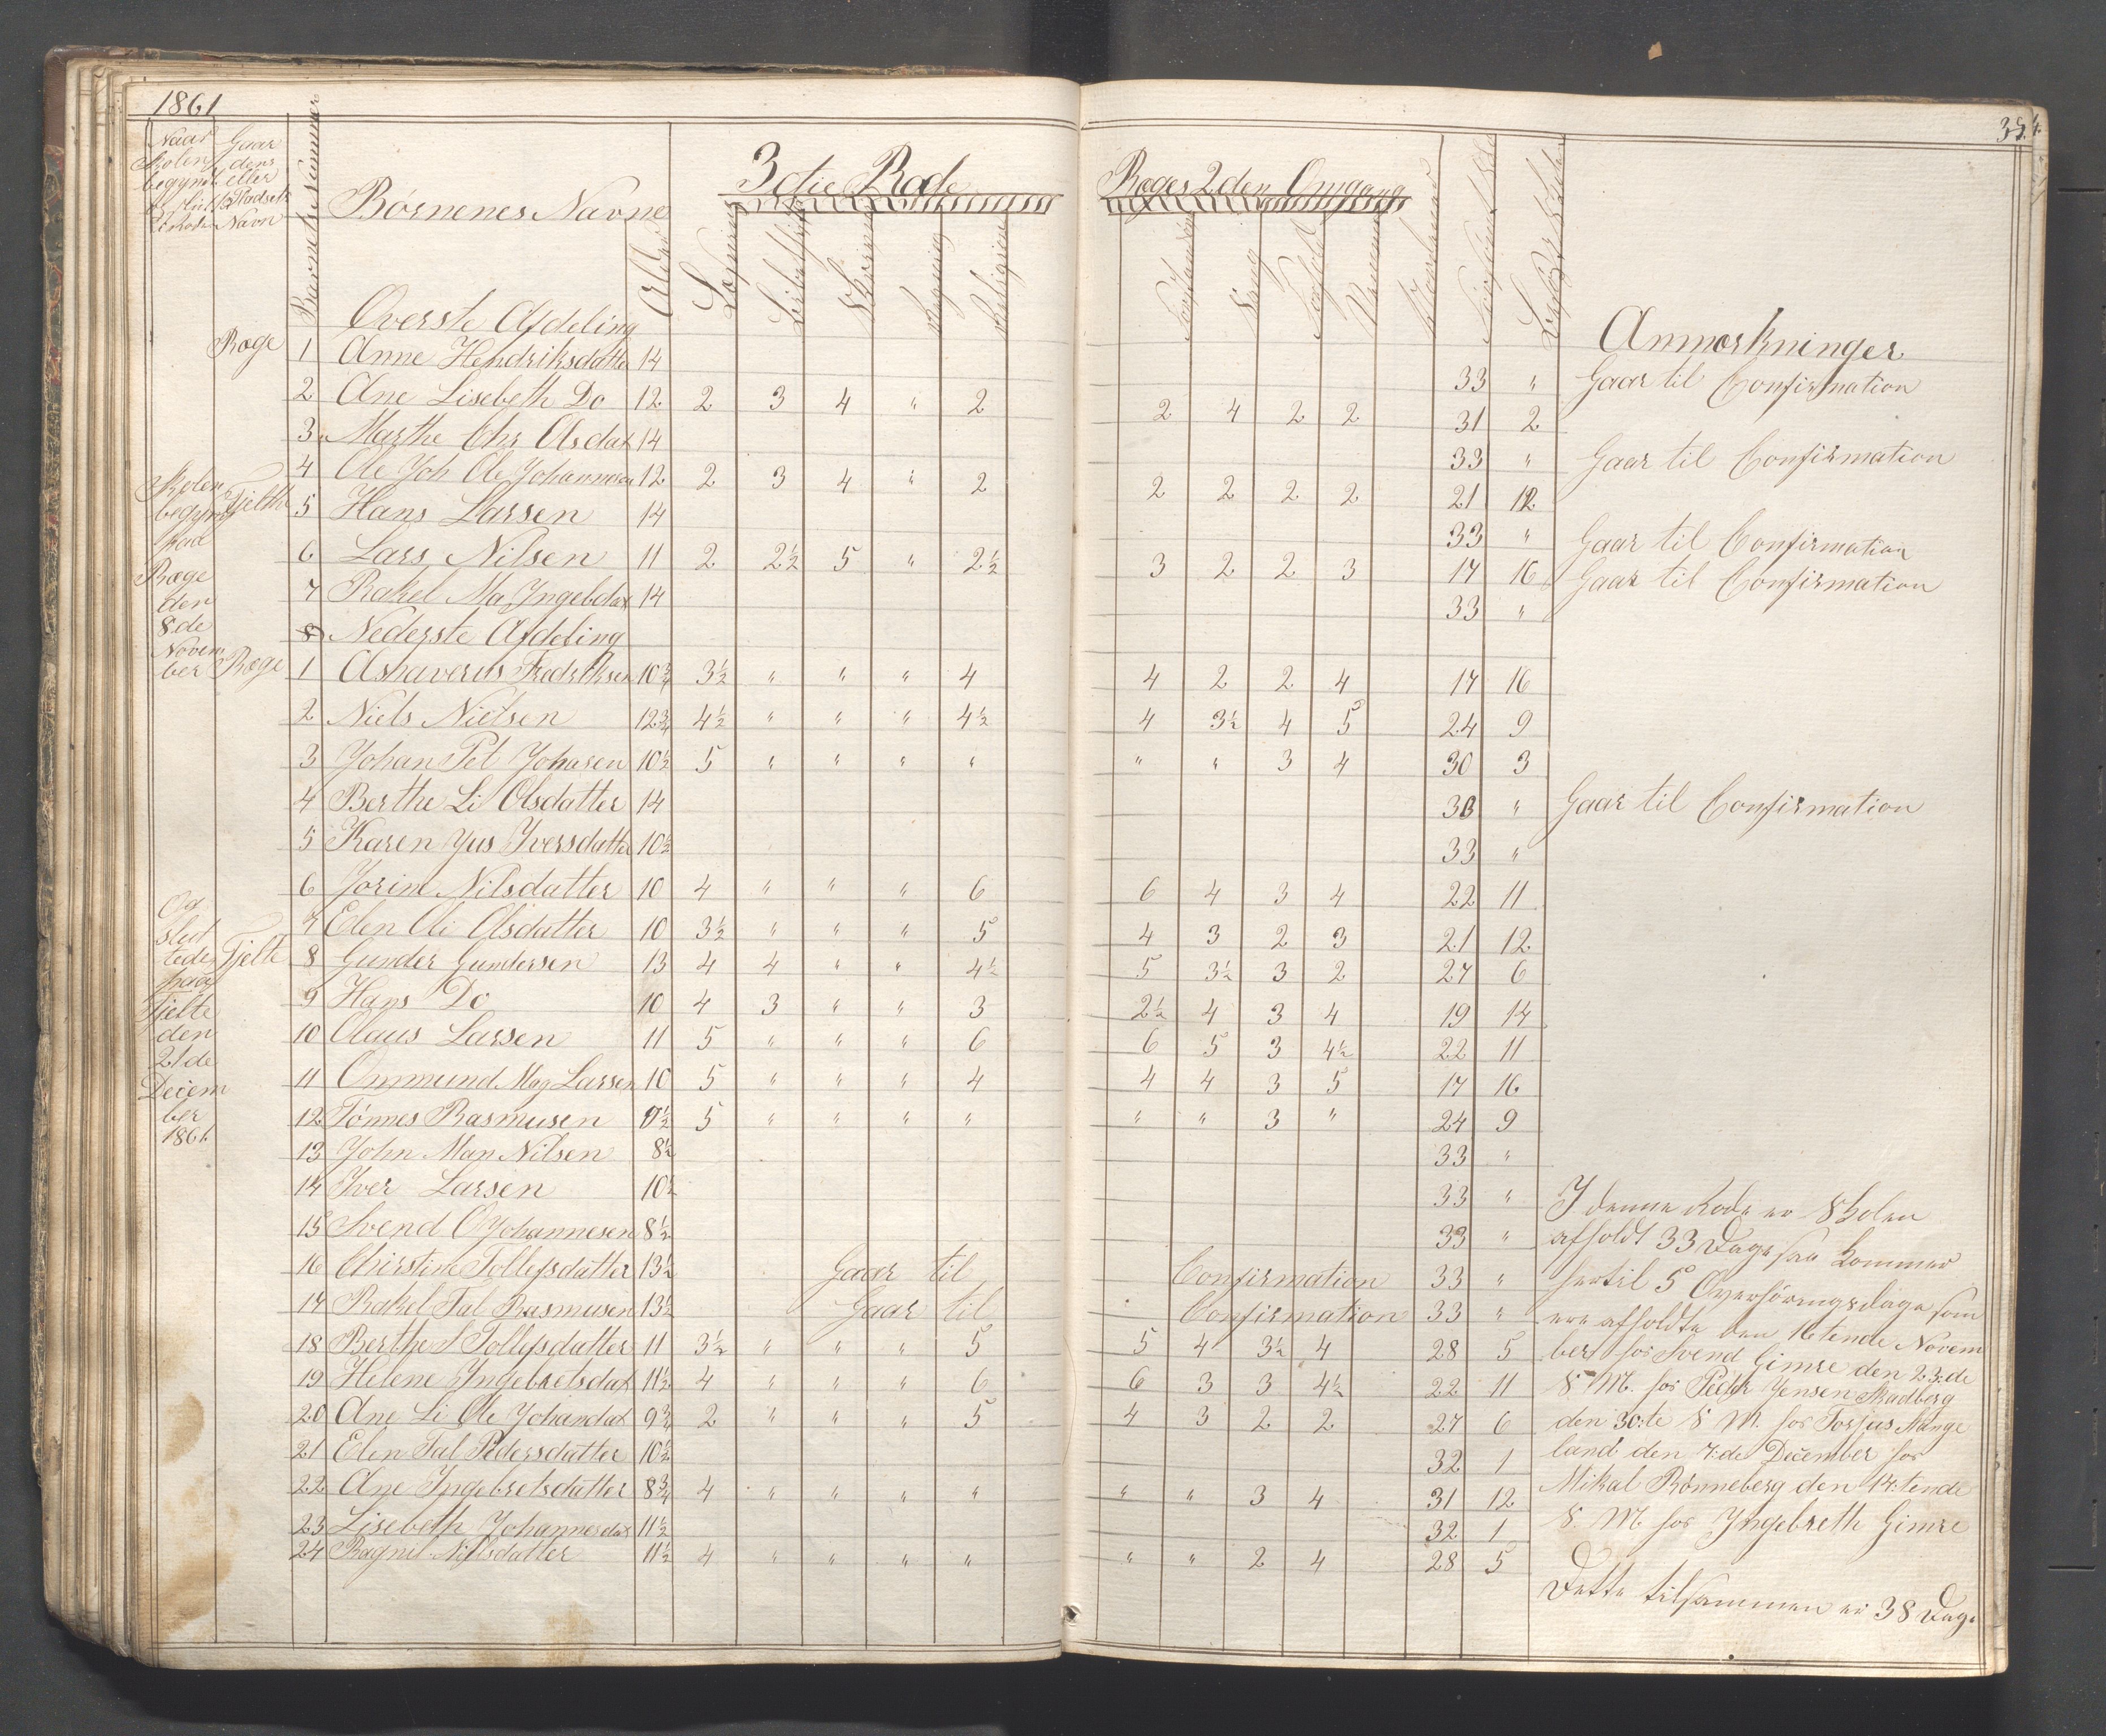 1861
34.
Naar Skolen begyndt Gaardens eller Pladsets Navn
Barnets Nummer
Børnenes Navne
Alder
3die Rode Røges 2den Omgang
Læsning Skrivning Regning Religion Sang
Anmærkninger
Øverste Afdeling
Røge 1 Anne Hendriksdatter 14 33 " Gaar til Confirmation
2 Ane Lisebeth Do 12 2 3 4 " 2 2 4 2 2 31 2
3 Marthe Chr Olsdat 14 33 " Gaar til Confirmation
4 Ole Joh Ole Johannesen 12 2 3 4 " 2 2 2 2 2 21 12
Tjelthe 5 Hans Larsen 14 33 " Gaar til Confirmation
6 Lars Nilsen 11 2 2½ 5 " 2½ 3 2 2 3 17 16 Gaar til Confirmation
7 Rakel Ma Ingebdat 14 33 "
Nederste Afdeling
Røge 1 Ashaverus Fredriksen 10¾ 3½ " " " 4 4 2 2 4 17 16
2 Niels Nielsen 12¾ 4½ " " " 4½ 4 3½ 4 5 24 9
3 Johan Pet Johasen 10½ 5 " " " " " " 3 4 30 3
4 Berthe Li Olsdatter 14 33 " Gaar til Confirmation
5 Karen Jus Iversdatter 10½ 33 "
6 Jorim Nilsdatter 10 4 " " " 6 6 4 3 4 22 11
7 Elen Oli Olsdatter 10 3½ " " " 5 4 3 2 3 21 12
Tjelte 8 Gunder Gundersen 13 4 4 " " 4½ 5 3½ 3 2 27 6
9 Hans Do 10 4 3 " " 3 2½ 4 3 4 19 14
10 Claus Larsen 11 5 " " " 6 6 5 3 4½ 22 11
11 Ommund Mag Larsen 10 5 " " " 4 4 4 3 5 17 16
12 Tønnes Rasmusen 9½ 5 " " " " " " 3 " 24 9
13 John Man Nilsen 8½ 33 "
14 Iver Larsen 10½ 33 "
15 Svend O Johannesen 8½ 33 "
16 Christine Tollefsdatter 13½ Gaar til Confirmation 33 "
17 Rakel Tal Rasmusen 13½ Gaar til Confirmation 33 "
18 Berthe S Tollefsdatter 11 3½ " " " 5 5 4 3½ 4 28 5
19 Helene Ingebretsdat 11½ 4 " " " 6 6 3 3 4½ 22 11
20 Ane Li Ole Johandat 9¾ 2 " " " 5 4 3 2 2 27 6
21 Elen Tal Pedersdatter 10½ 32 1
22 Ane Ingebretsdatter 8¾ 4 " " " " " " 3 4 31 12
23 Lisebeth Johannesdat 11½ 32 1
24 Ragnil Nilsdatter 11½ 4 " " " " " " 2 4 28 5
Skolen
begynt
paa
Røge
den
8:de
Novem
ber
Og
slut
tedes
paa
Tjelte
den
21de
Decem
ber
1861
I denne Rode er Skolen
afholdt 33 Dage saa kommer
hertil 5 Overføringsdage som
ere afholdte den 16tende Novem
ber for Svend Gimre den 23:de
S. M. for Peder Jensen Madberg
den 30:te S. M. for Torjus Mange
land den 7:de December for
Mikal Rønneberg den 14:tende
S. M. for Ingebreth Gimre
Dette tilsammen er 38 Dage